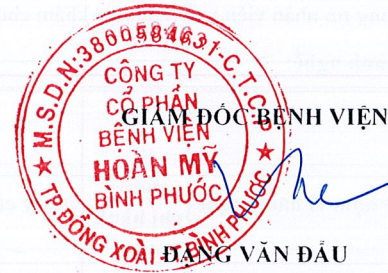 M.S.D.N:3800584631-C.T.C.P
CÔNG TY
CỔ PHẦN
BỆNH VIỆN
HOÀN MỸ
BÌNH PHƯỚC
TP.ĐỒNG XOÀI - T.BÌNH PHƯỚC
GIÁM ĐỐC BỆNH VIỆN
ĐẶNG VĂN ĐẨU